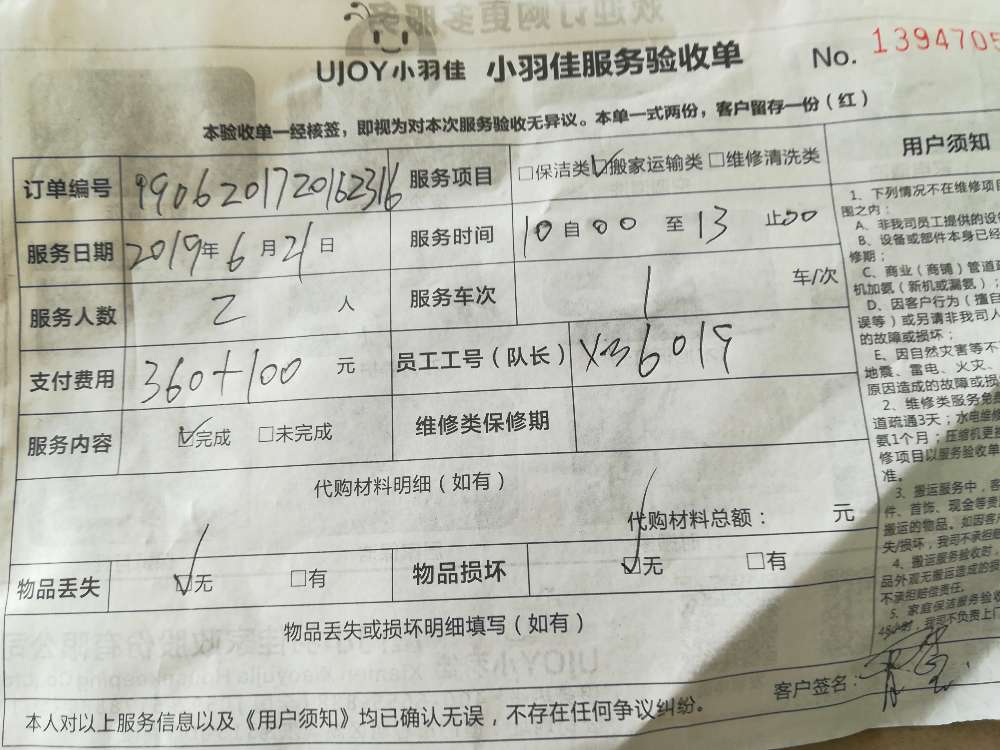 UJOY小羽佳 小羽佳服务验收单 No. 1394705
本验收单一经核签，即视为对本次服务验收无异议。本单一式两份，客户留存一份（红）
订单编号 9906201720162316 服务项目 □保洁类 ☑搬家运输类 □维修清洗类
服务日期 2019年6月21日 服务时间 10自00 至13止00
服务人数 2 人 服务车次 1 车/次
支付费用 360+100 元 员工工号（队长） X36019
服务内容 ☑完成 □未完成 维修类保修期
代购材料明细（如有）
代购材料总额： 元
物品丢失 ☑无 □有 物品损坏 ☑无 □有
物品丢失或损坏明细填写（如有）
客户签名：
本人对以上服务信息以及《用户须知》均已确认无误，不存在任何争议纠纷。
用户须知
1、下列情况不在维修项目
围之内：
A、非我司员工提供的设
B、设备或部件本身已经
修期；
C、商业（商铺）管道
机加氨（新机或漏氨）；
D、因客户行为（擅自
误等）或另请非我司人
的故障或损坏；
E、因自然灾害等不
地震、雷电、火灾、
原因造成的故障或损
2、维修类服务免
道疏通3天；水电维
氨1个月；压缩机更换
修项目以服务验收单
准。
3、搬运服务中，客
件、首饰、现金等贵
搬运的物品，如因客
失/损坏，我司不承担赔
4、搬运服务验收时，
品外观无搬运造成的损
不承担赔偿责任。
5、家庭保洁服务验收
48小时，我司不负责上门